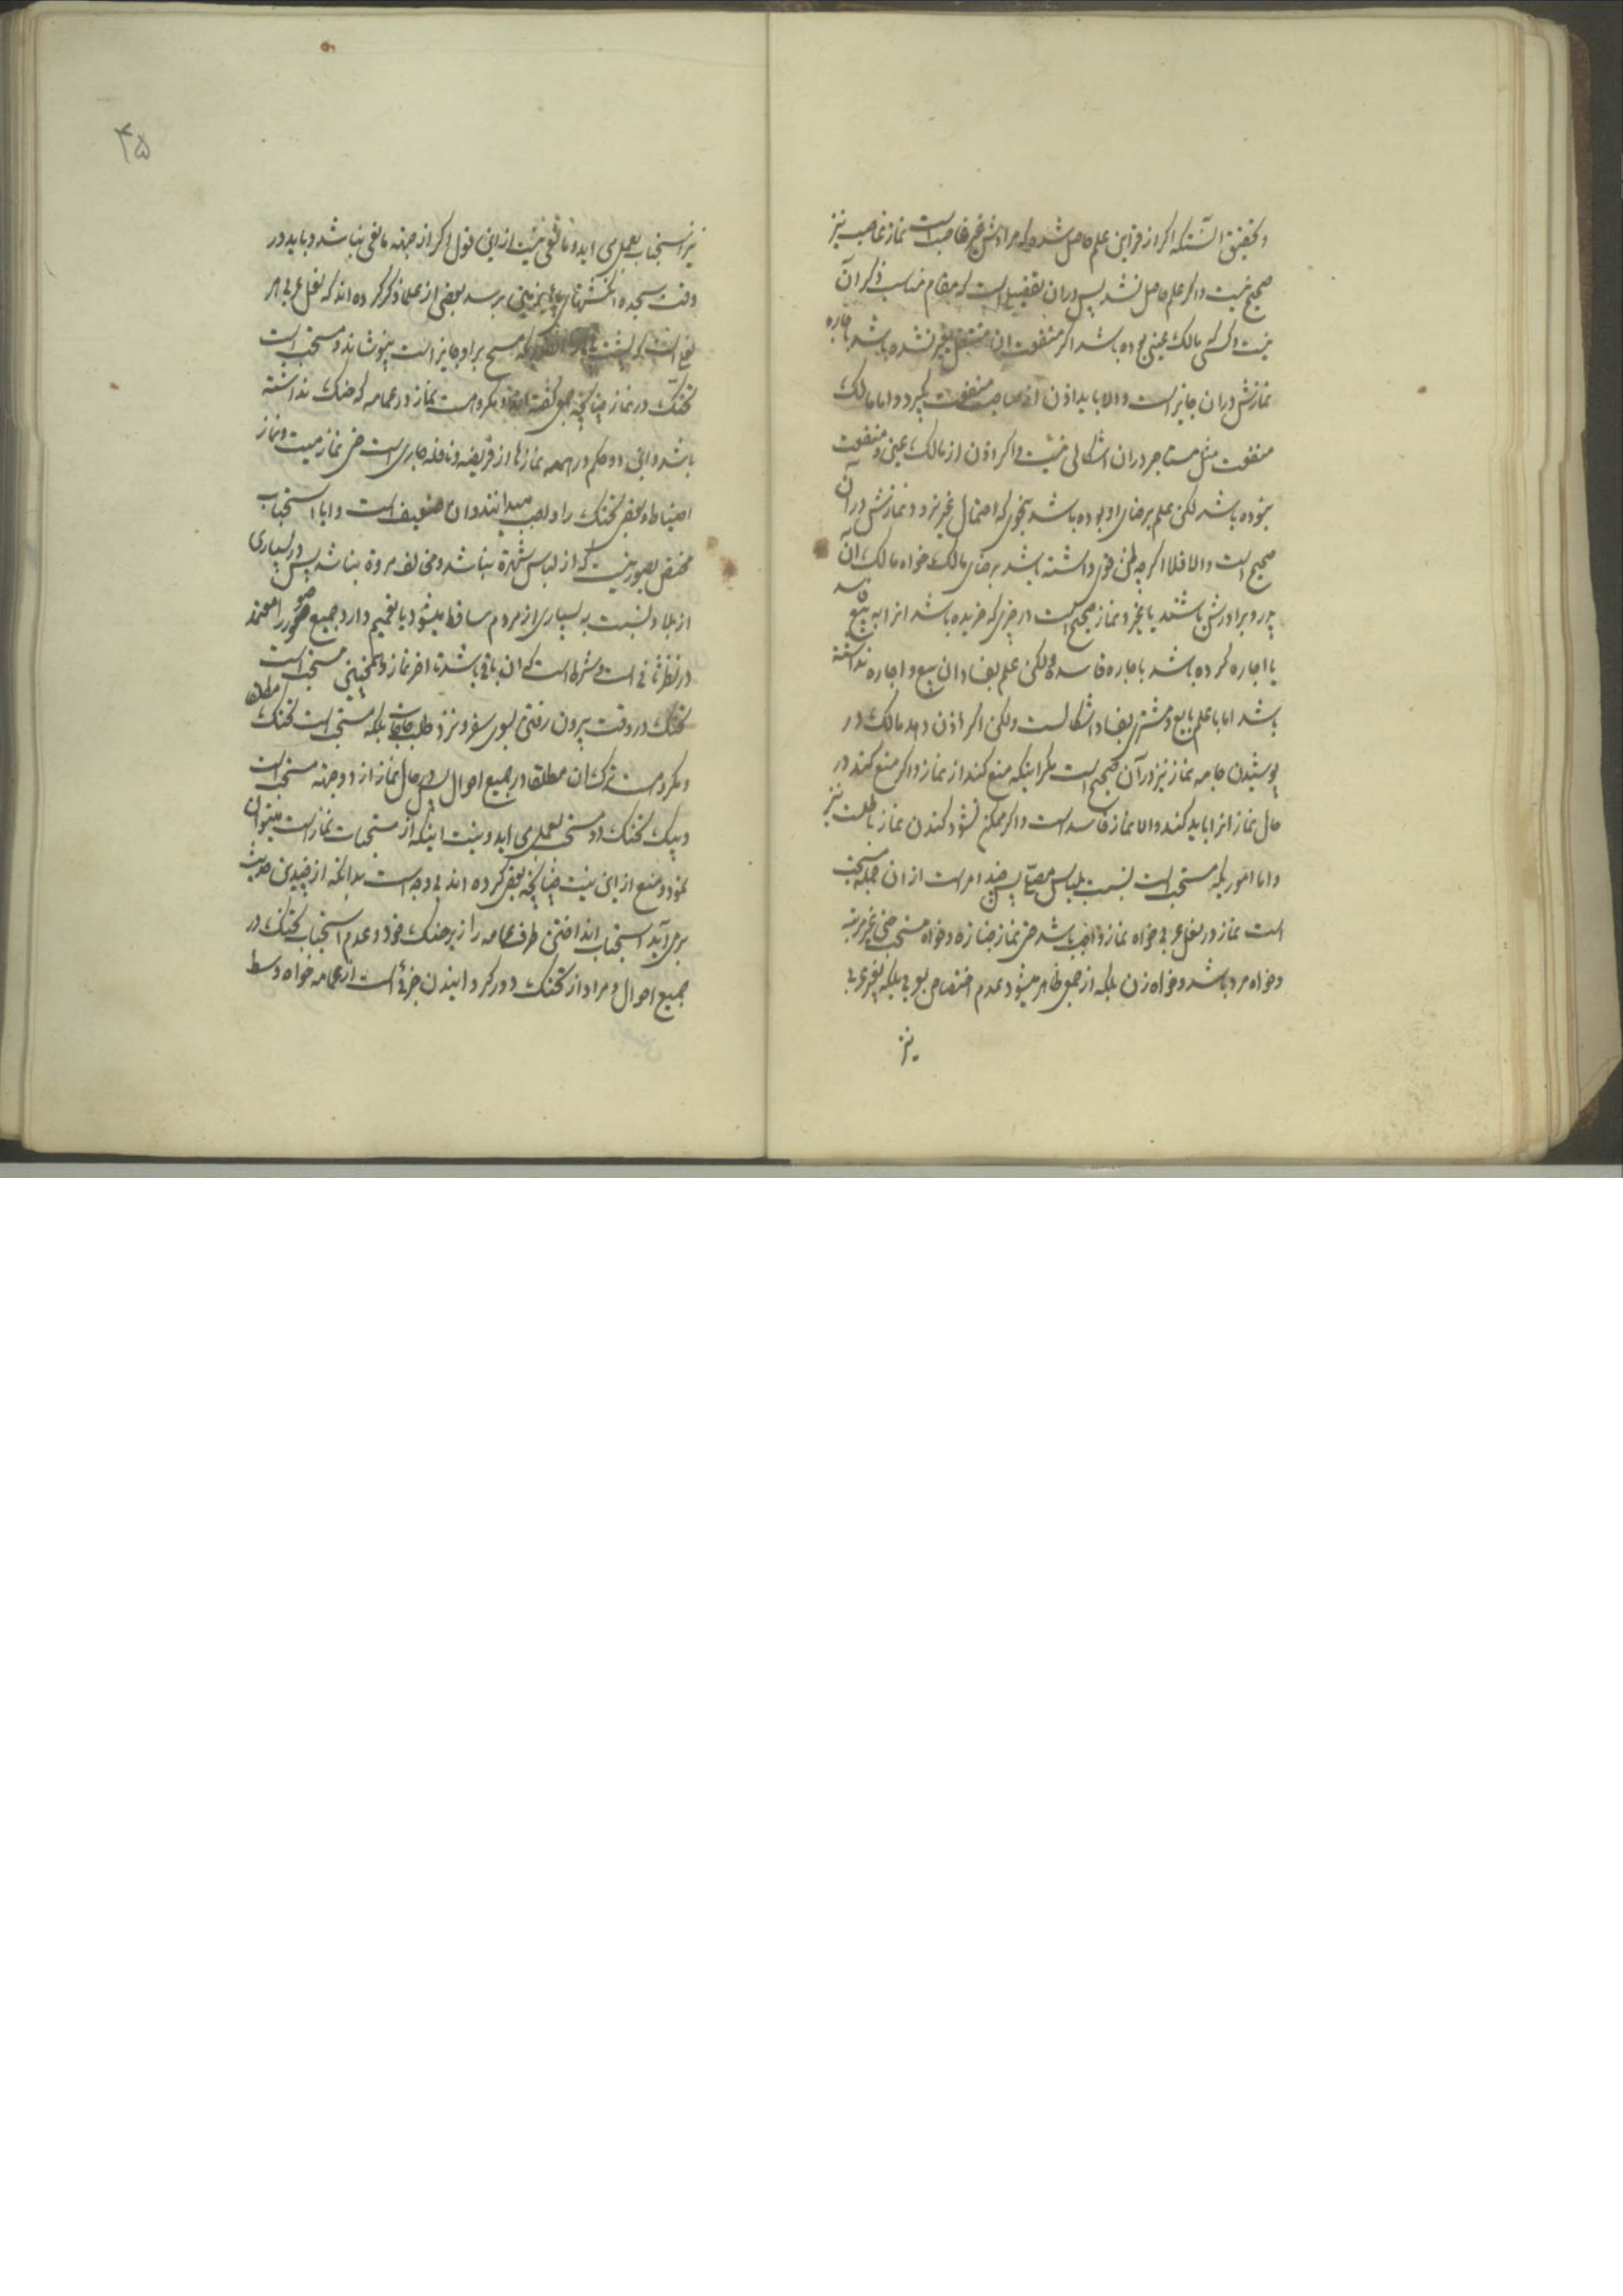 و تحقیق آنستکه اگر از قراین علم حاصل شد که مرادش غیر غاصب است نماز غاصب نیز
صحیح نیست و اگر علم حاصل نشد پس دران تفصیلی است که مقام مناسب ذکر آن
نیست و کسی مالک عین بوده باشد اگر منفعت ان منتقل بغیر نشده باشد باجاره
نمازش دران جایز است والا باید اذن از صاحب منفعت بگیرد و اما مالک
منفعت مثل مستاجر دران اشکالی نیست و اگر اذن از مالک عین و منفعت
نبوده باشد لکن علم برضای او بوده باشد بنحوی که احتمال غیر نرود نمازش در آن
صحیح است والا فلا اگر چه ظن قوی داشته باشد برضای مالک خواه مالک ان
پدر و برادرش باشند یا غیر و نماز صحیح است در چیزی که خریده باشد انرا به بیع
یا اجاره کرده باشد باجاره فاسده ولکن علم بفساد ان بیع و اجاره نداشته
باشد اما با علم بایع و مشتری بفساد اشکالست ولکن اگر اذن دهد مالک در
پوشیدن جامه نماز نیز در آن صحیح است مگر اینکه منع کند از نماز و اگر منع کند در
حال نماز انرا باید کند والا نماز فاسد است و اگر ممکن نشود کندن نماز باطلست نیز
و اما اموریکه مستحب است نسبت بلباس مصلی پس چند امر است از ان جمله مستحب
است نماز در نعل عربی خواه نماز واجب باشد حتی نماز جنازه و خواه مستحب حتی غیر مرتبه
و خواه مرد باشد و خواه زن بلکه از جمعی ظاهر میشود عدم اختصاص بعربی بلکه بغیر عربی
نیز
۴۵
نیز استحباب بعمل می اید و مانعی نیست از این قول اگر از جهته مانعی نباشد و باید در
وقت سجده انگشتهای پا بزمین برسد بعضی از علما ذکر کرده اند که نعل عربی هر
نعلی است که پشت پا مسح بر او جایز است نپوشاند و مستحب است
تحنک در نماز چنانچه جمعی گفته اند و مکروهست نماز در عمامه که حنک نداشته
باشد و این دو حکم در همه نمازها از فریضه و نافله جاری است حتی نماز میت و نماز
احتیاط و بعضی تحنک را واجب میدانند و ان ضعیف است و ایا استحباب
مختص بصورتیست که از لباس شهرة نباشد و مخالف مروة نباشد پس در بسیاری
از بلاد نسبت به بسیاری از مردم ساقط میشود یا تعمیم دارد جمیع صور را معتمد
در نظر ثانی است و شرط است که ان باقی باشد تا اخر نماز و همچنین مستحب است
تحنک در وقت بیرون رفتن بسوی سفر و نزد طلب حاجات بلکه مستحب است تحنک مطلقا
و مکروهست ترک ان مطلقا در جمیع احوال پس در حال نماز از دو جهته مستحب است
و بیک تحنک دو مستحب بعمل می اید و نیت اینکه از مستحبات نماز است میتوان
نمود و منع از این نیت چنانچه بعضی کرده اند بی وجه است بدانکه از چندین حدیث
بر می آید استحباب انداختن طرف عمامه را از زیر حنک خود و عدم استحباب تحنک در
جمیع احوال و مراد از تحنک دور گردانیدن جزئی است از عمامه خواه وسط